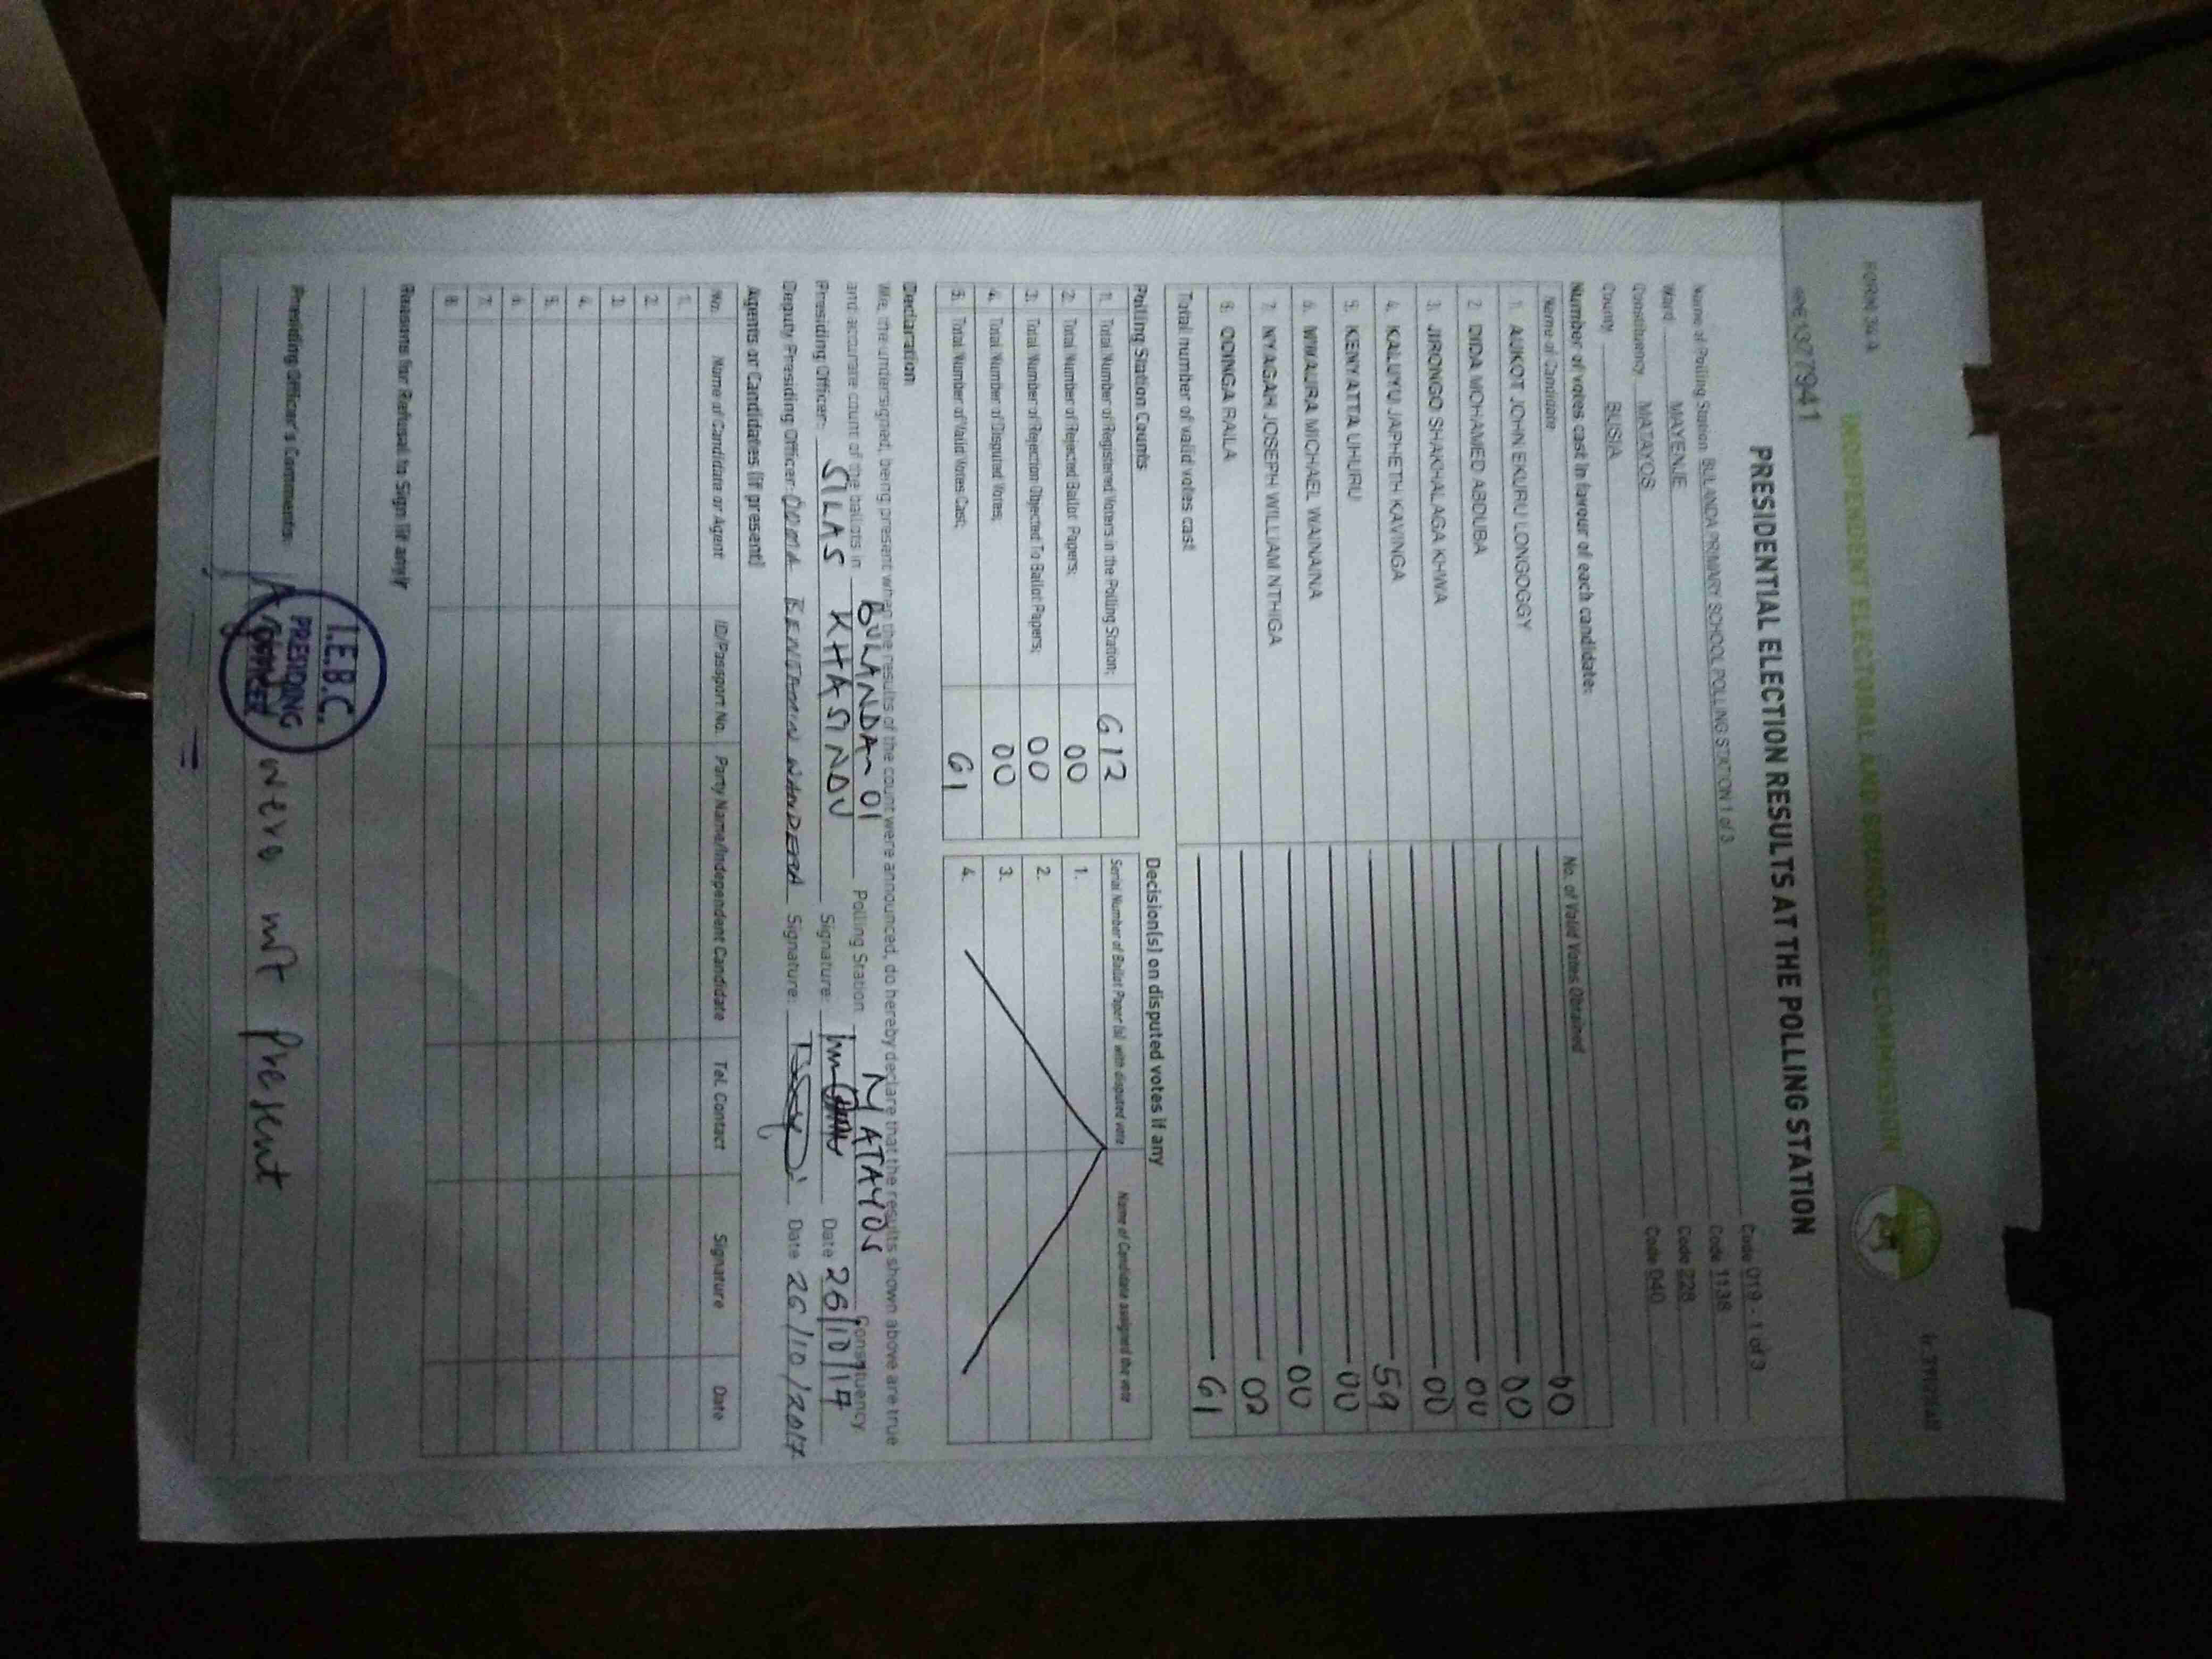 FORM 34A
INDEPENDENT ELECTORAL AND BOUNDARIES COMMISSION
PRESIDENTIAL ELECTION RESULTS AT THE POLLING STATION
Name of Polling Station BULANDA PRIMARY SCHOOL POLLING STATION 1 of 3 Code 019 - 1 of 3
Ward MAYENJE Code 1138
Constituency MATAYOS Code 228
County BUSIA Code 040
Number of votes cast in favour of each candidate:
Name of Candidate No. of Valid Votes Obtained
1. AUKOT JOHN EKURU LONGOGGY 00
2. DIDA MOHAMED ABDUBA 00
3. JIRONGO SHAKHALAGA KHWA 00
4. KALUYU JAPHETH KAVINGA 00
5. KENYATTA UHURU 59
6. MWAURA MICHAEL WAINAINA 00
7. NYAGAH JOSEPH WILLIAM NTHIGA 00
8. ODINGA RAILA 02
Total number of valid votes cast 61
Polling Station Counts
1. Total Number of Registered Voters in the Polling Station; 612
2. Total Number of Rejected Ballot Papers; 00
3. Total Number of Rejection Objected To Ballot Papers; 00
4. Total Number of Disputed Votes; 00
5. Total Number of Valid Votes Cast; 61
Decision(s) on disputed votes if any
Serial Number of Ballot Paper (s) with disputed vote Name of Candidate assigned the vote
1.
2.
3.
4.
Declaration
We, the undersigned, being present when the results of the count were announced, do hereby declare that the results shown above are true
and accurate count of the ballots in BULANDA 01 Polling Station MATAYOS Constituency
Presiding Officer: SILAS KHASINDU Signature: Date 26/10/17
Deputy Presiding Officer: Signature: Date 26/10/2017
Agents or Candidates (if present)
No. Name of Candidate or Agent ID/Passport No. Party Name/Independent Candidate Tel. Contact Signature Date
1.
2.
3.
4.
5.
6.
7.
8.
Reasons for Refusal to Sign (if any)
Presiding Officer's Comments:
were not present
I.E.B.C.
PRESIDING
OFFICER